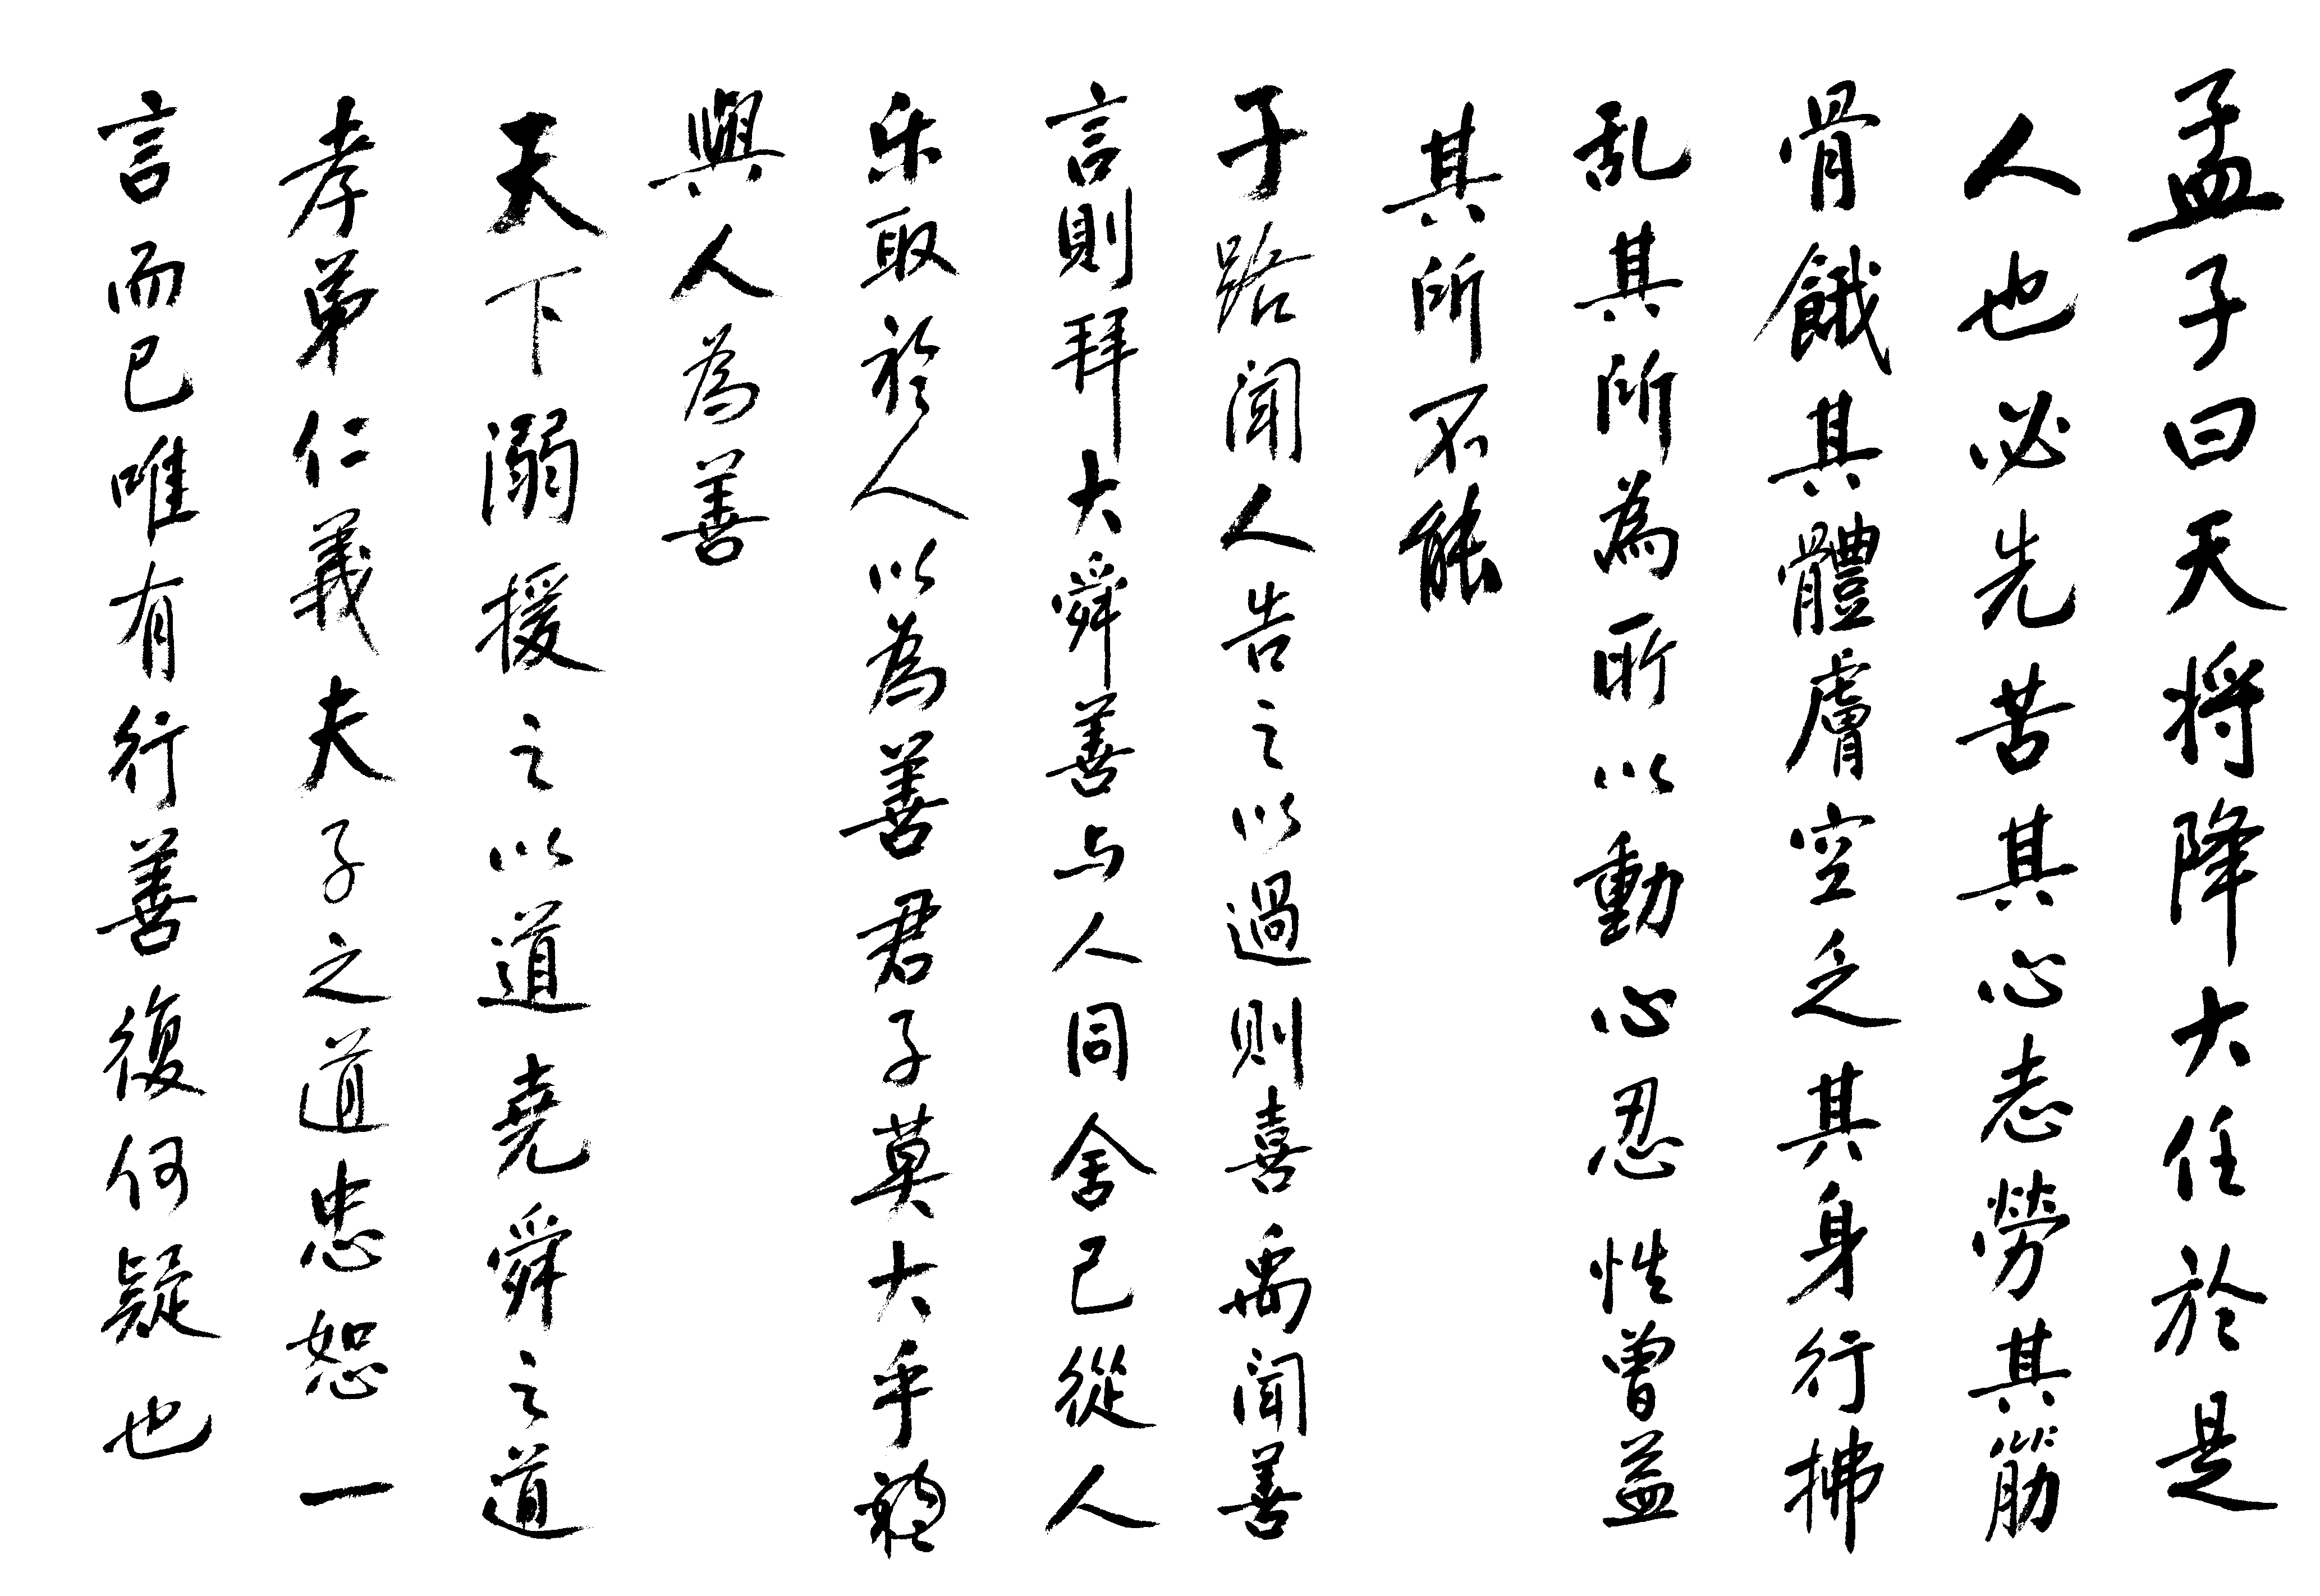 孟子曰天将降大任於是
人也必先苦其心志勞其筋
骨餓其體膚空乏其身行拂
乱其所為所以動心忍性曾益
其所不能
子路聞人告之以過则喜禹聞善
言則拜大舜善与人同舍己從人
乐取於人以為善君子莫大乎
與人為善
天下溺援之以道堯舜之道
孝弟仁義夫子之道忠恕一
言而已唯有行善復何疑也